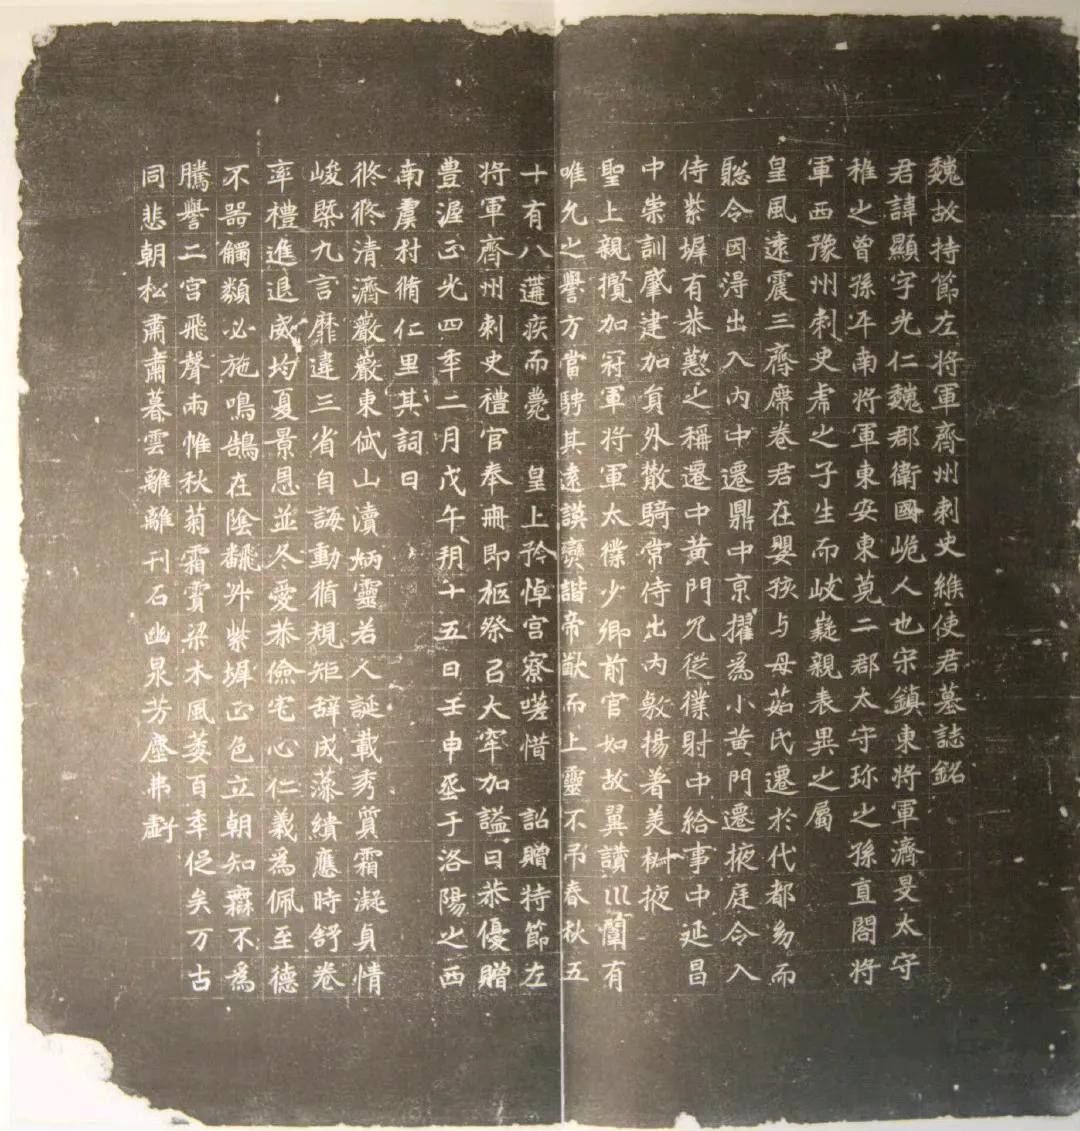 魏故持節左將軍齊州刺史維使君墓誌銘
君諱顯字光仁魏郡衛國峗人也宋鎮東將軍濟旻太守
稚之曾孫平南將軍東安東莞二郡太守珎之孫直閤將
軍西豫州刺史虎之子生而岐嶷親表異之屬
皇風遠震三齊席卷君在嬰孩与母茹氏遷於代都㓜而
聡令因淂出入內中遷鼎中京擢為小黃門遷掖庭令入
侍紫墀有恭懃之稱遷中黃門冗從僕射中給事中延昌
中崇訓肇建加員外散騎常侍出內敭揚著美椒掖
聖上親攬加冠軍將軍太僕少卿前官如故翼讚川闈有
唯允之譽方當騁其遠謨燮諧帝猷而上靈不吊春秋五
十有八遘疾而薨 皇上矜悼宮寮嗟惜 詔贈持節左
將軍齊州刺史禮官奉冊即柩祭㠯大窂加謚曰恭優贈
豊渥正光四年二月戊午朔十五日壬申䒱于洛陽之西
南䖍村脩仁里其詞曰
悠悠清濟巖巖東岱山瀆炳靈若人誕載秀質霜凝貞情
峻槩九言靡違三省自誨動循規矩辭成藻繢應時舒卷
率禮進退威均夏景恩並冬愛恭儉宅心仁義為佩至德
不器觸類必施鳴鵠在陰飜升紫墀正色立朝知無不為
騰譽二宮飛聲兩帷秋菊霜賈梁木風萎百年促矣万古
同悲朝松肅肅暮雲離離刊石幽泉芳塵弗虧